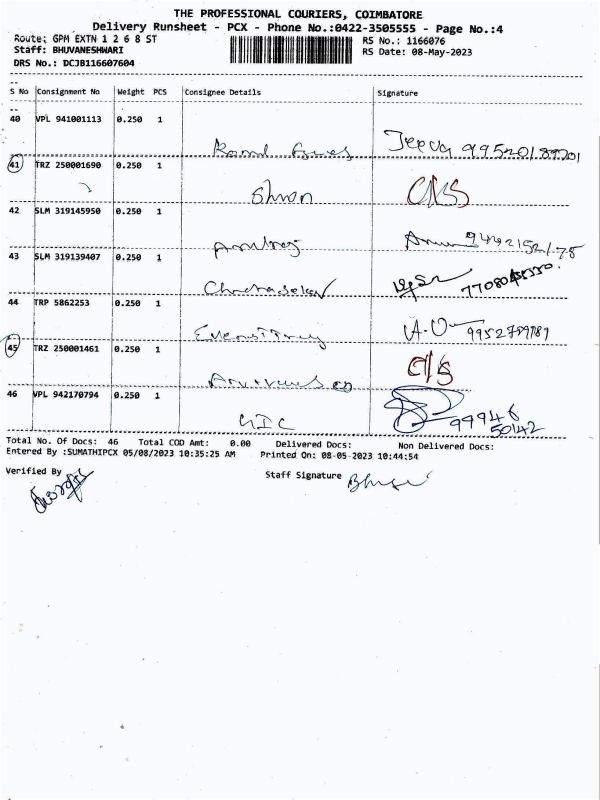 THE PROFESSIONAL COURIERS, COIMBATORE
Delivery Runsheet - PCX - Phone No.:0422-3505555 - Page No.:4
Route: GPM EXTN 1 2 6 8 ST RS No.: 1166076
Staff: BHUVANESHWARI RS Date: 08-May-2023
DRS No.: DCJB116607604
S No Consignment No Weight PCS Consignee Details Signature
40 VPL 941001113 0.250 1
Jeeva
41 TRZ 250001690 0.250 1
C/S
42 SLM 319145950 0.250 1
43 SLM 319139407 0.250 1
44 TRP 5862253 0.250 1
9952789789
45 TRZ 250001461 0.250 1
C/S
46 VPL 942170794 0.250 1
LIC 99946
50142
Total No. Of Docs: 46 Total COD Amt: 0.00 Delivered Docs: Non Delivered Docs:
Entered By :SUMATHIPCX 05/08/2023 10:35:25 AM Printed On: 08-05-2023 10:44:54
Verified By Staff Signature